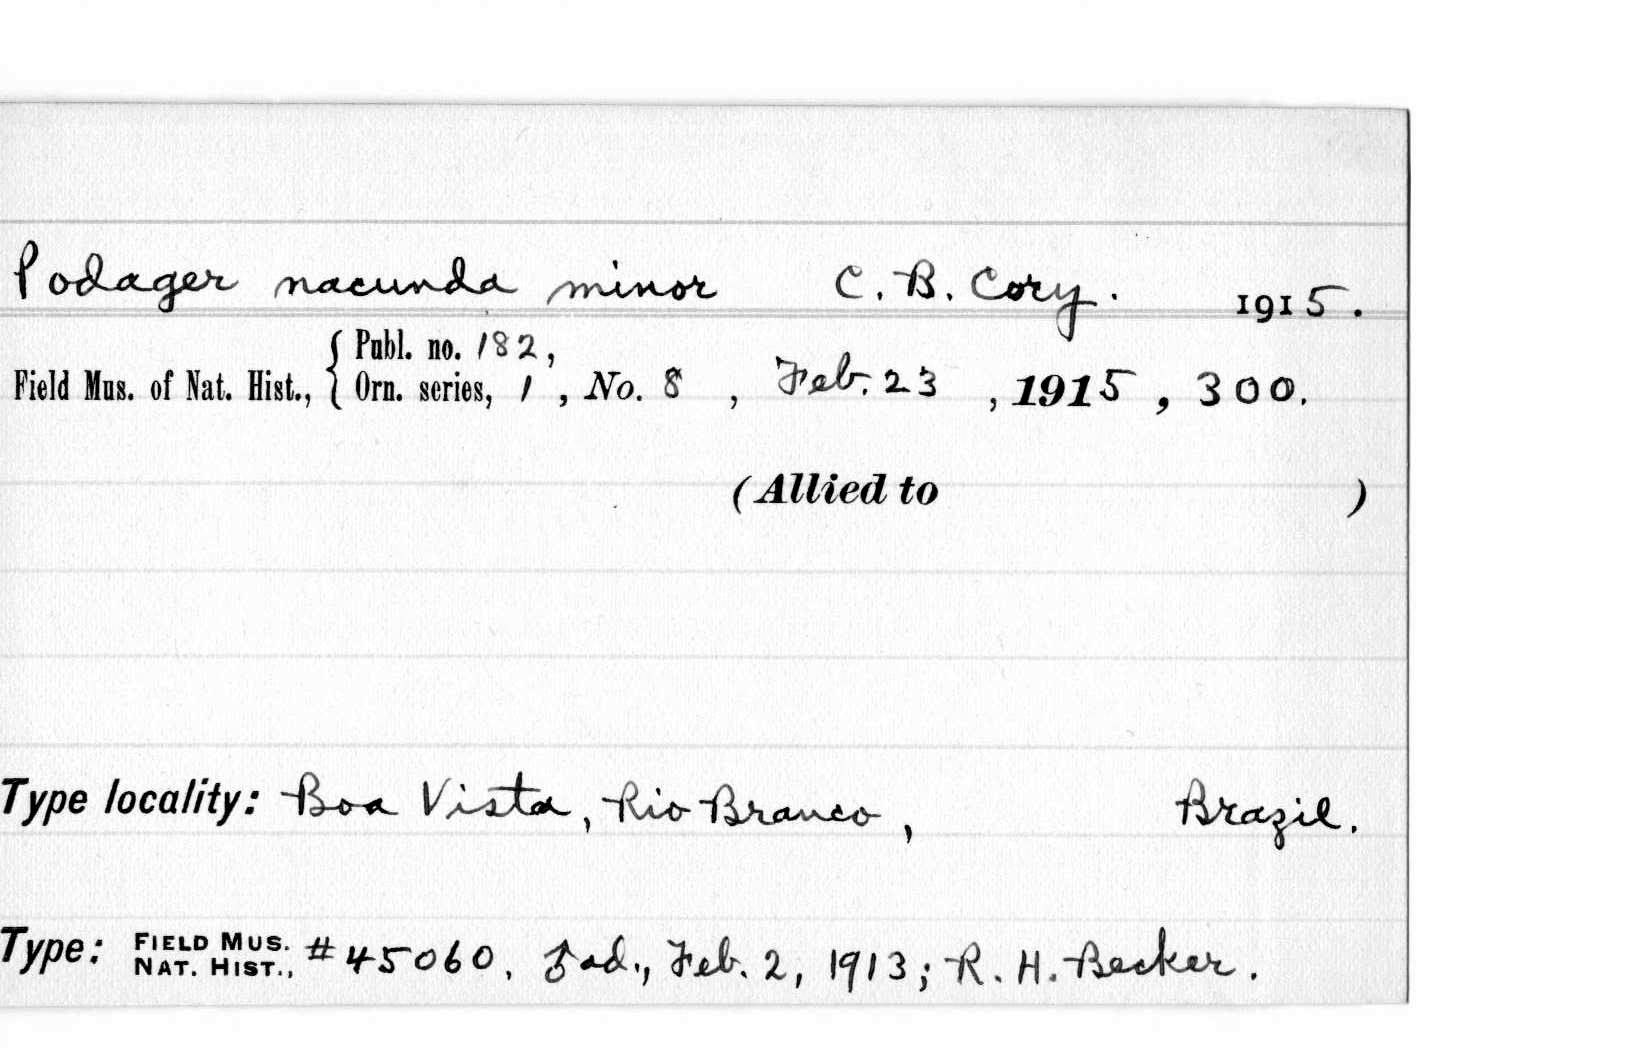 Podager nacunda minor C. B. Cory. 1915.
Publ. no. 182,
Field Mus. of Nat. Hist., { Orn. series, 1, No. 8, Feb. 23, 1915, 300.
(Allied to )
Type locality: Boa Vista, Rio Branco, Brazil.
Type: FIELD MUS. NAT. HIST., #45060, ♂ad., Feb. 2, 1913; R. H. Becker.